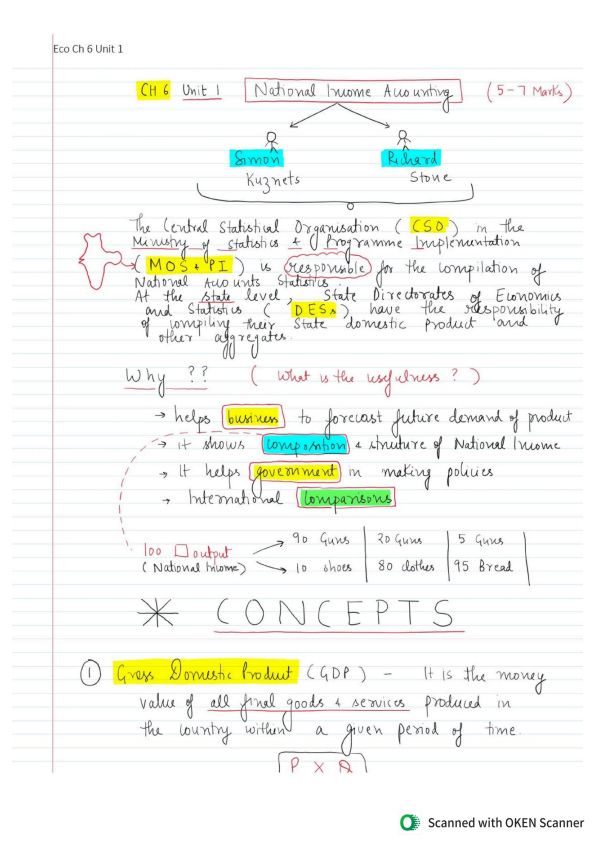 Eco Ch 6 Unit 1
CH 6 Unit 1 National Income Accounting (5-7 Marks)
Simon Richard
Kuznets Stone
The Central Statistical Organisation (CSO) in the
Ministry of Statistics & Programme Implementation
(MOS & PI) is responsible for the compilation of
National Accounts Statistics.
At the state level, State Directorates of Economics
and Statistics (DESs) have the responsibility
of compiling their State domestic product and
other aggregates.
Why ?? (What is the usefulness?)
→ helps business to forecast future demand of product
→ it shows composition & structure of National Income
→ It helps government in making policies
→ International Comparisons
100 □ output → 90 Guns | 20 Guns | 5 Guns
(National Income) → 10 shoes | 80 clothes | 95 Bread
* CONCEPTS
① Gross Domestic Product (GDP) - It is the money
value of all final goods & services produced in
the country within a given period of time.
P X Q
Scanned with OKEN Scanner